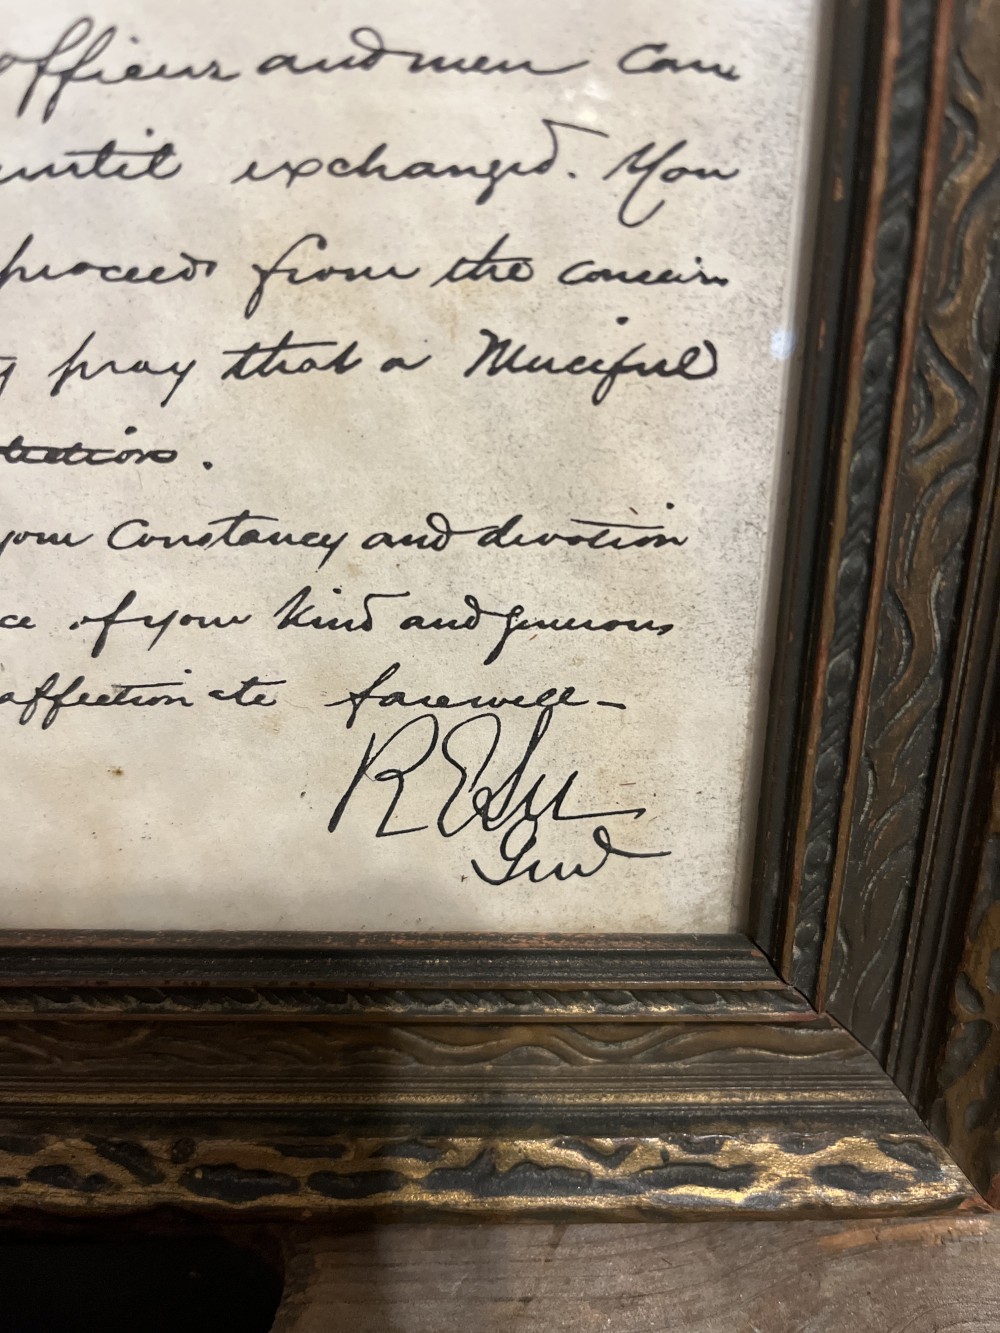 officers and men can
until exchanged. You
proceeds from the conscious
pray that a Merciful
your Constancy and devotion
of your kind and generous
affectionate farewell-
R E Lee
Genl